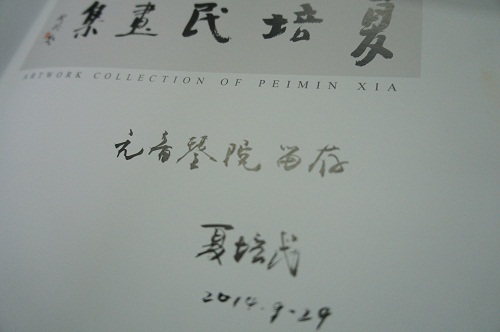 夏培民畫集
ARTWORK COLLECTION OF PEIMIN XIA
元音琴院 留存
夏培民
2014.9.29